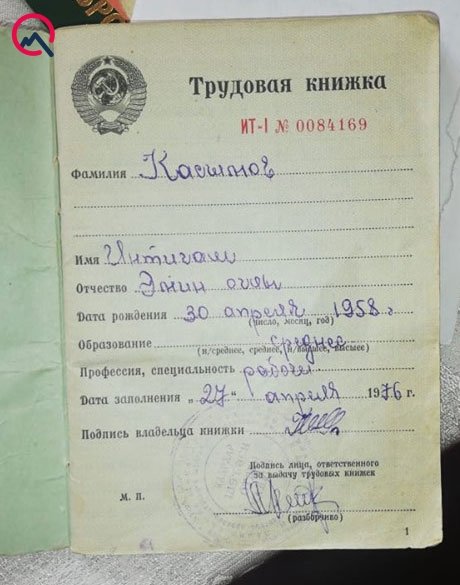 Трудовая книжка
ИТ-I № 0084169
Фамилия
Имя Интигам
Отчество оглы
Дата рождения 30 апреля 1958 г
(число, месяц, год)
Образование среднее
(н/среднее, среднее, н/высшее, высшее)
Профессия, специальность рабочий
Дата заполнения „27“ апреля 1976 г.
Подпись владельца книжки
Подпись лица, ответственного
за выдачу трудовых книжек
М. П.
(разборчиво)
1